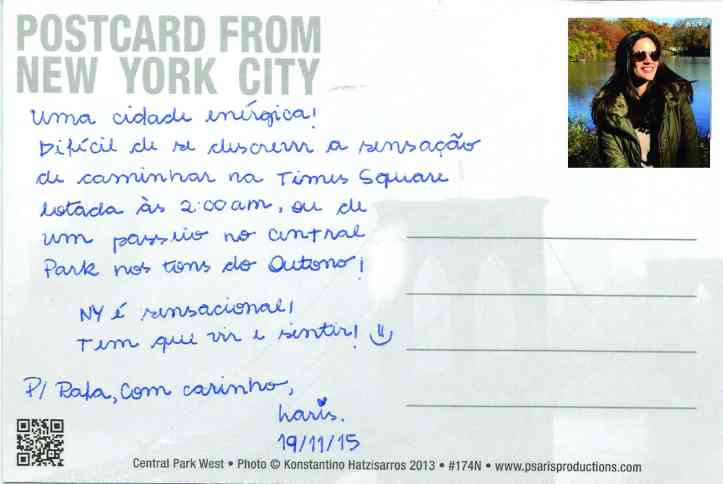 POSTCARD FROM
NEW YORK CITY
Uma cidade enérgica!
Difícil de se descrever a sensação
de caminhar na Times Square
lotada às 2:00am, ou de
um passeio no Central
Park nos tons do Outono!
NY é sensacional!
Tem que vir e sentir!
P/ Rafa, Com carinho,
Laris.
19/11/15
Central Park West • Photo © Konstantino Hatzisarros 2013 • #174N • www.psarisproductions.com